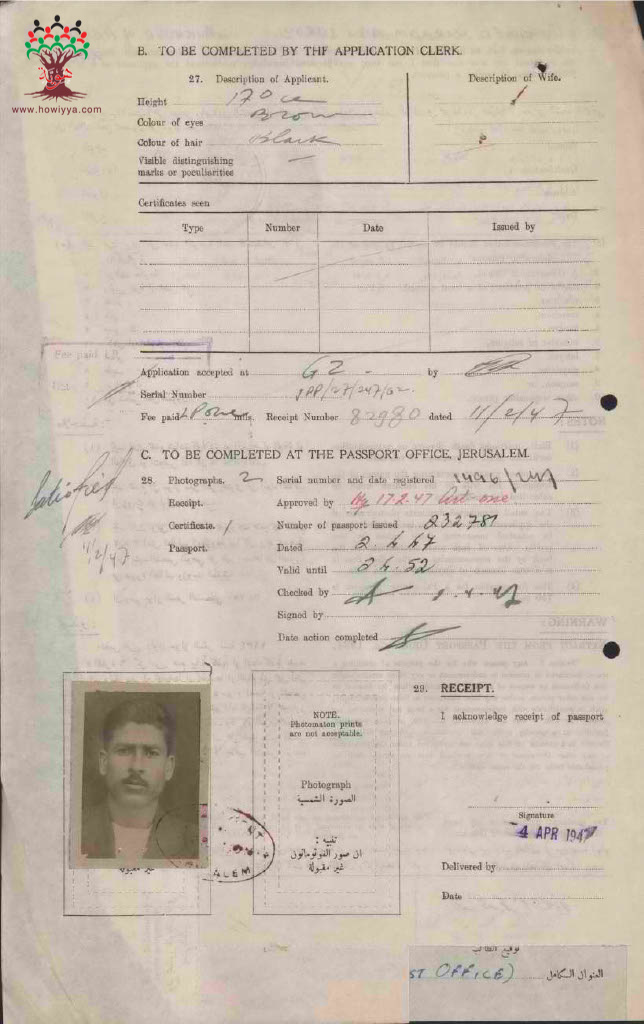 www.howiyya.com
B. TO BE COMPLETED BY THE APPLICATION CLERK.
27. Description of Applicant.
Description of Wife.
Height 170 cm
Colour of eyes Brown
Colour of hair Black
Visible distinguishing
marks or peculiarities —
Certificates seen
Type Number Date Issued by
Fee paid LP.
Application accepted at G2 - by
Serial Number
Fee paid mls. Receipt Number 82980 dated 11/2/47
C. TO BE COMPLETED AT THE PASSPORT OFFICE, JERUSALEM.
28. Photographs. 2 Serial number and date registered 1496/247
Receipt. Approved by 17.2.47 one
Certificate. 1 Number of passport issued 232781
Passport. Dated 2.4.47
Valid until 2.4.52
Checked by
Signed by
Date action completed
29. RECEIPT.
I acknowledge receipt of passport
NOTE.
Photomaton prints
are not acceptable.
Photograph
الصورة الشمسية
تنبيه :
ان صور الفوتوماتون
غير مقبولة
غير مقبولة
ALEM
Signature
4 APR 1947
Delivered by
Date
توقيع الطالب
العنوان الكامل
ST OFFICE)